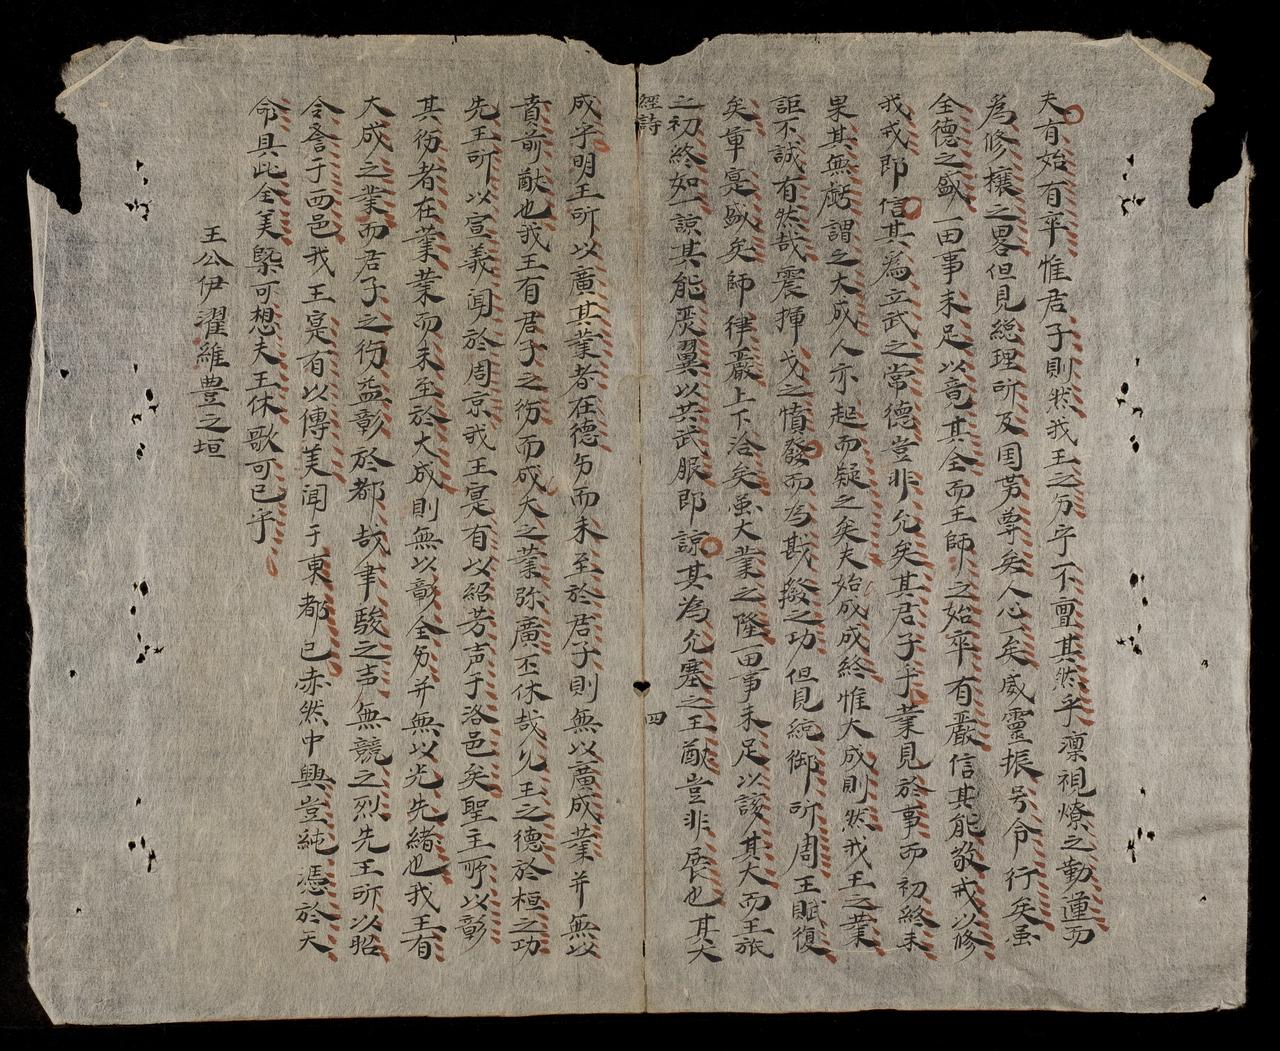 夫有始有卒惟君子則然我王之方字下亶其然乎凜視燎之勤運而
為修攘之畧但見総理所及国芳尊矣人心一矣威靈振号令行矣虽
全德之盛一田事未足以竟其全而王師之始卒有嚴信其能敬戒以修
我戎即信其為立武之常德豈非允矣其君子乎業見於事而初終未
果其無虧謂之大成人亦起而疑之矣夫始成成終惟大成則然我王之業
詎不誠有然哉震揮戈之憤發而为戡撥之功但見統御所周王賦復
矣軍寔盛矣師律嚴上下洽矣虽大業之隆一田事未足以該其大而王旅
之初終如一諒其能嚴翼以共武服即諒其為允塞之王猷豈非展也其大
經詩
四
成乎明王所以廣其業者在德方而未至於君子則無以廣成業并無以
賁前猷也我王有君子之方而成大之業弥廣丕休哉允王之德於桓之功
先王所以宣義聞於周京我王寔有以紹芳声于洛邑矣聖主所以彰
其方者在業業而未至於大成則無以彰全方并無以光先緒也我王有
大成之業而君子之方益彰於都哉聿駿之声無競之烈先王所以昭
令誉于西邑我王寔有以傳美聞于東都已赤然中興豈純憑於天
命具此全美槩可想夫王休歌可已乎
王公伊濯維豊之垣